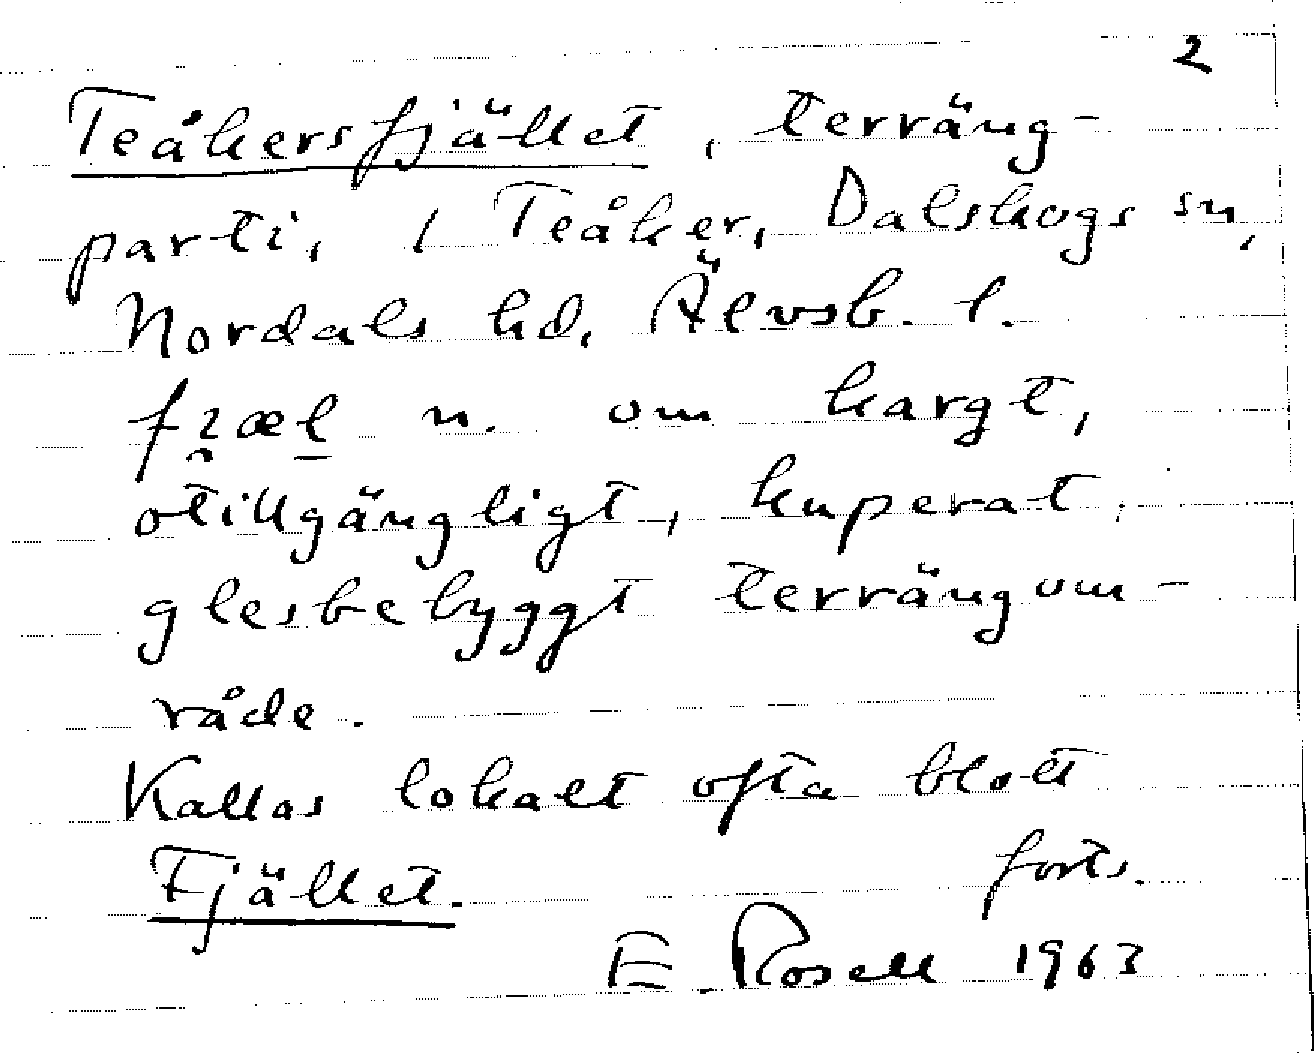 2
Teåkersfjället, terräng-
parti, i Teåker, Dalskogs sn,
Nordals hd, Älvsb. l.
n. om kargt,
otillgängligt, kuperat,
glesbebyggt terrängom-
råde.
Kallas lokalt ofta blott
Fjället.
forts.
E. Rosell 1963